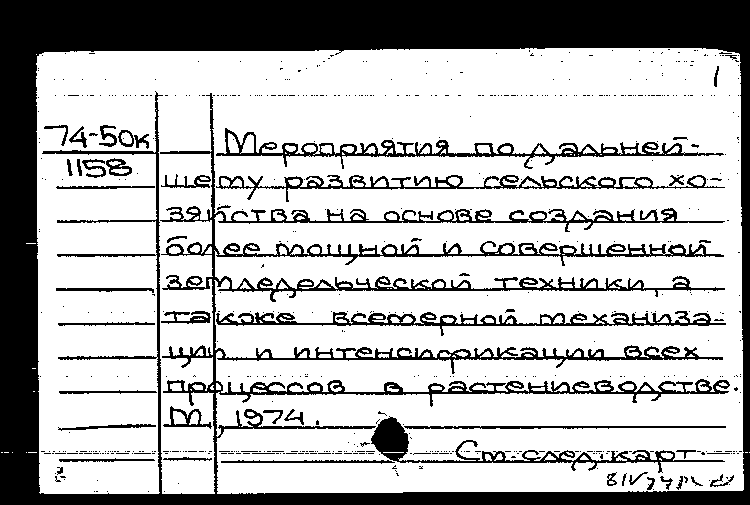 1
74-50к Мероприятия по дальней-
1158 шему развитию сельского хо-
зяйства на основе создания
более мощной и совершенной
земледельческой техники, а
также всемерной механиза-
ции и интенсификации всех
процессов в растениеводстве.
М., 1974.
См. след. карт.